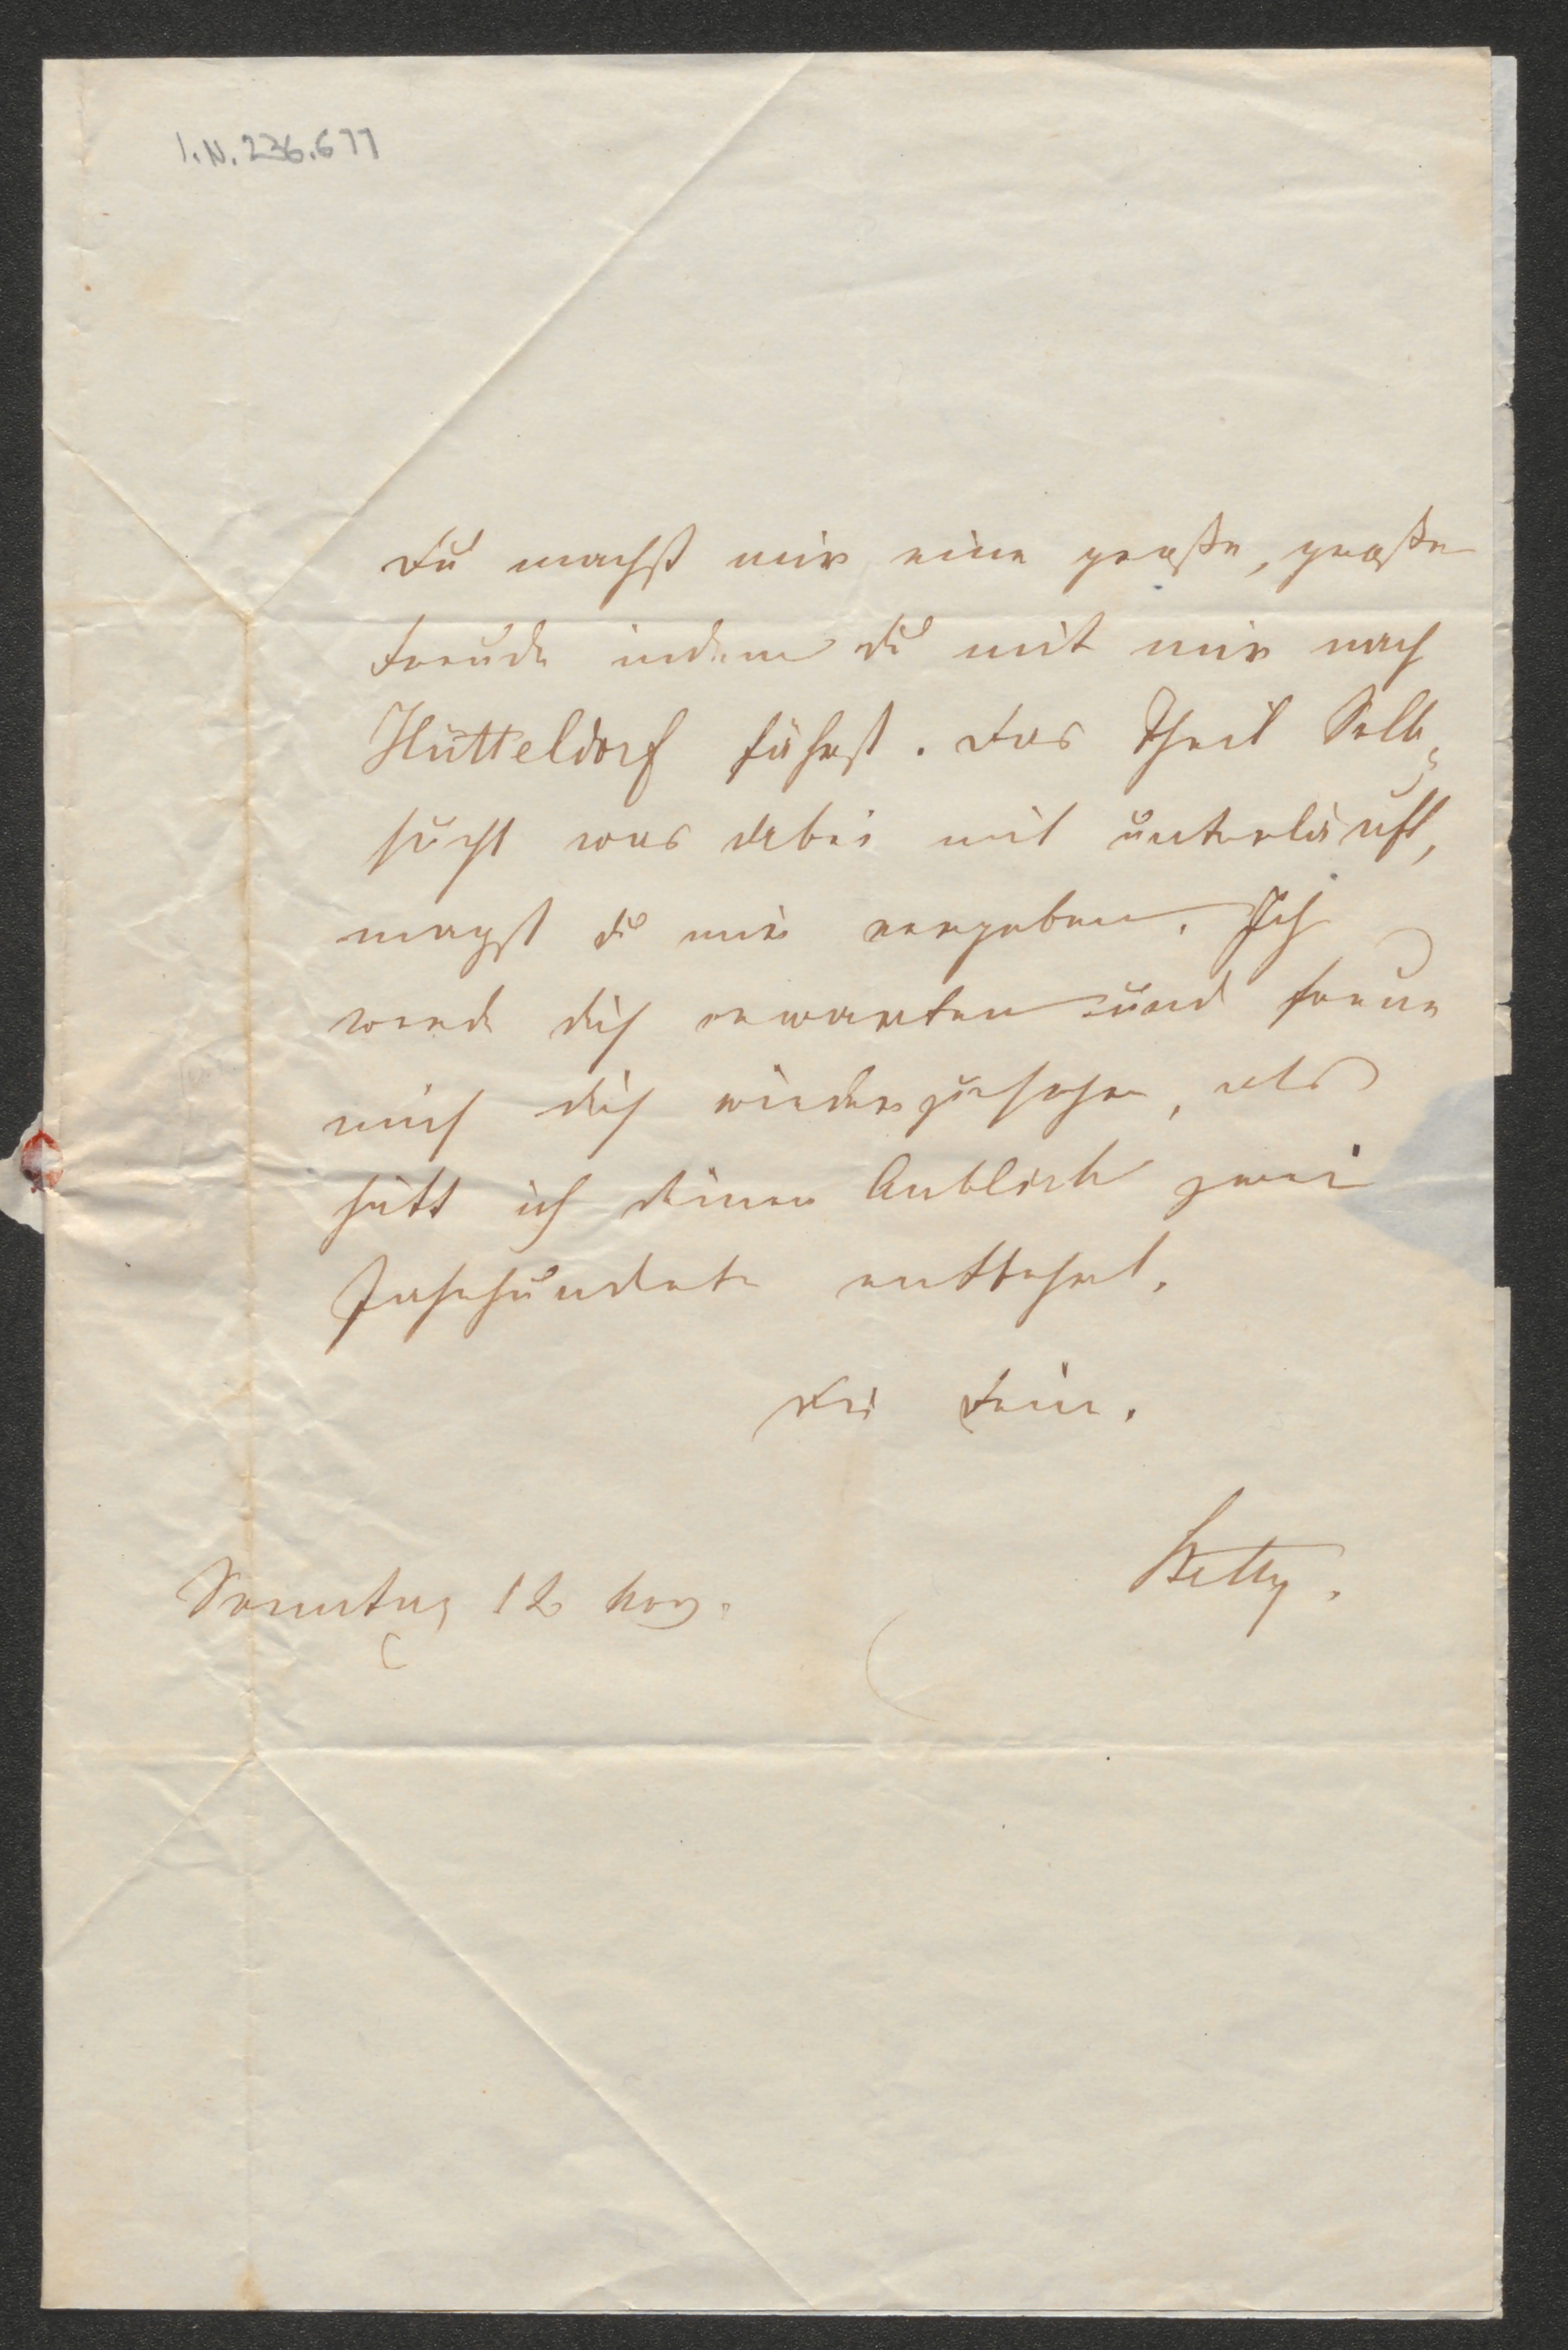 I.N. 236.677
Du machst mir eine große, große
Freude indem du mit mir nach
Hütteldorf fährst. Das Theil Selb¬
sucht was dabei mit unterläuft,
magst du mir vergeben. Ich
werde dich erwarten und freue
mich dich wiederzusehen, als
hätt ich deinen Anblick zwei
Jahrhunderte entbehrt.
Die Deine.
Betty.
Sonntag 12 Nov.